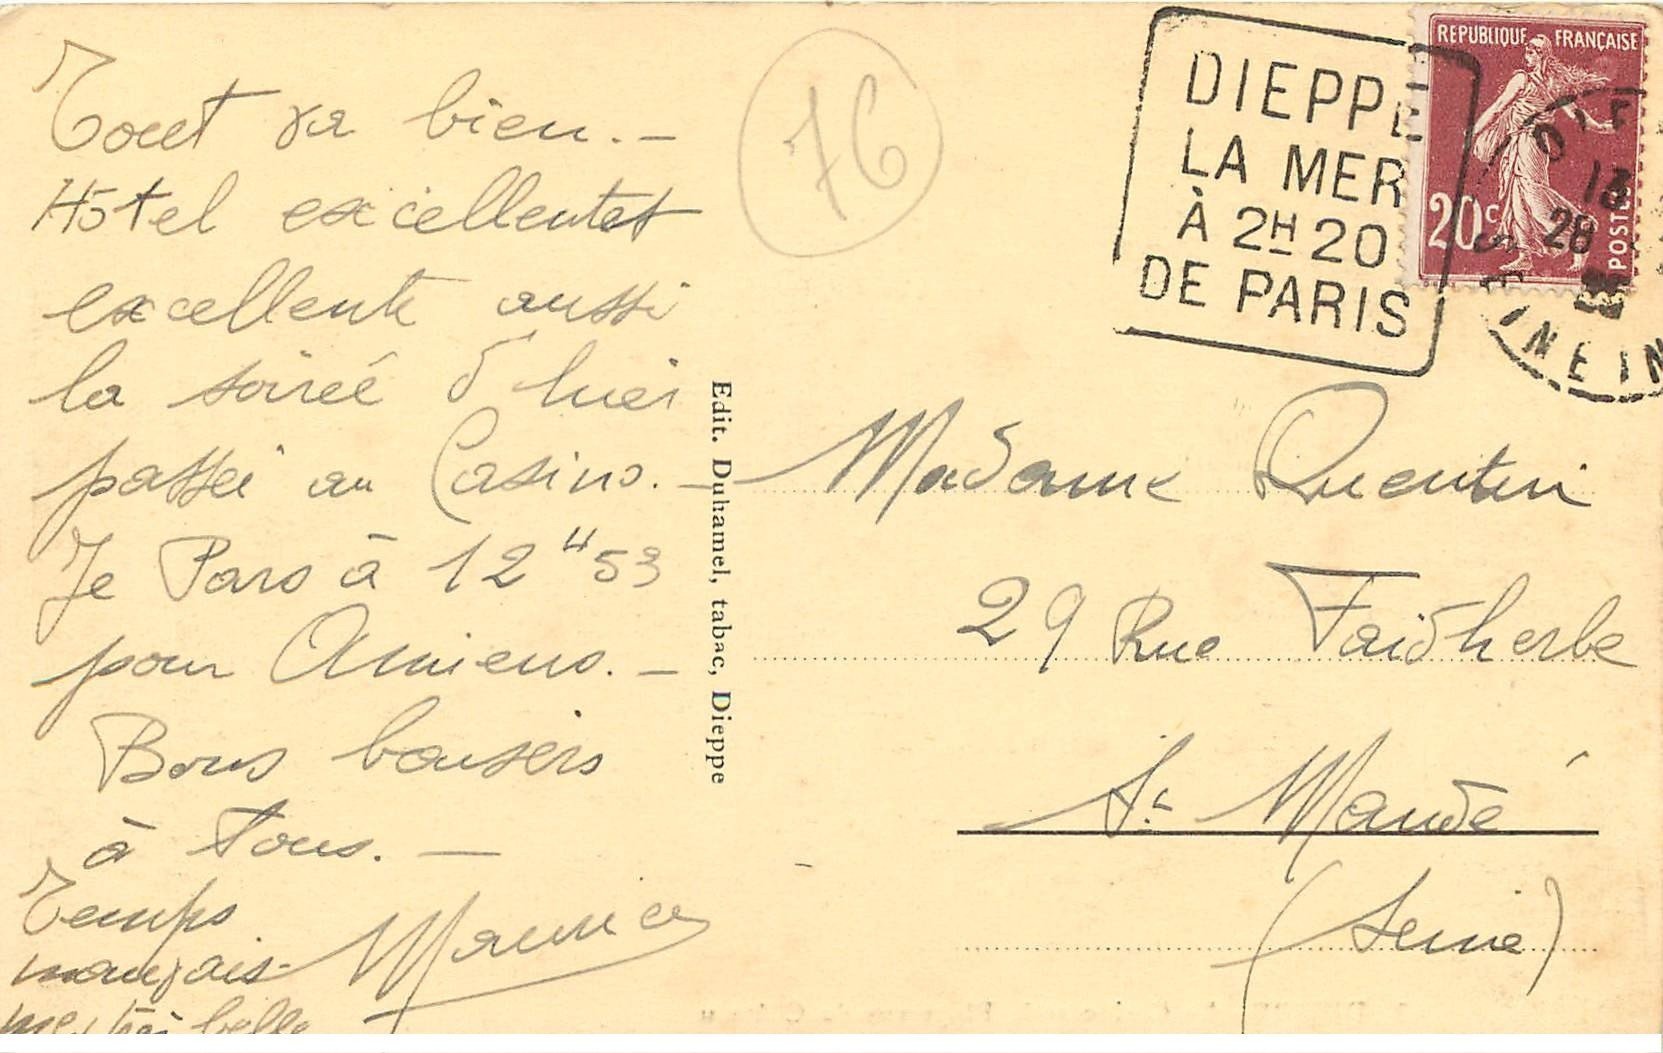 Tout va bien. -
Hôtel excellentet
excellente aussi
la soirée d'hier
passée au Casino. -
Je Pars à 12 H 53
pour Amiens. -
Bons baisers
à tous. -
Temps
mauvais -
mer très belle
Maurice
76
Edit. Duhamel, tabac, Dieppe
DIEPPE
LA MER
À 2H 20
DE PARIS
REPUBLIQUE FRANÇAISE
20c
POSTES
13
28
SEINE IN
Madame Quentin
29 Rue Faidherbe
St Mandé
(Seine)